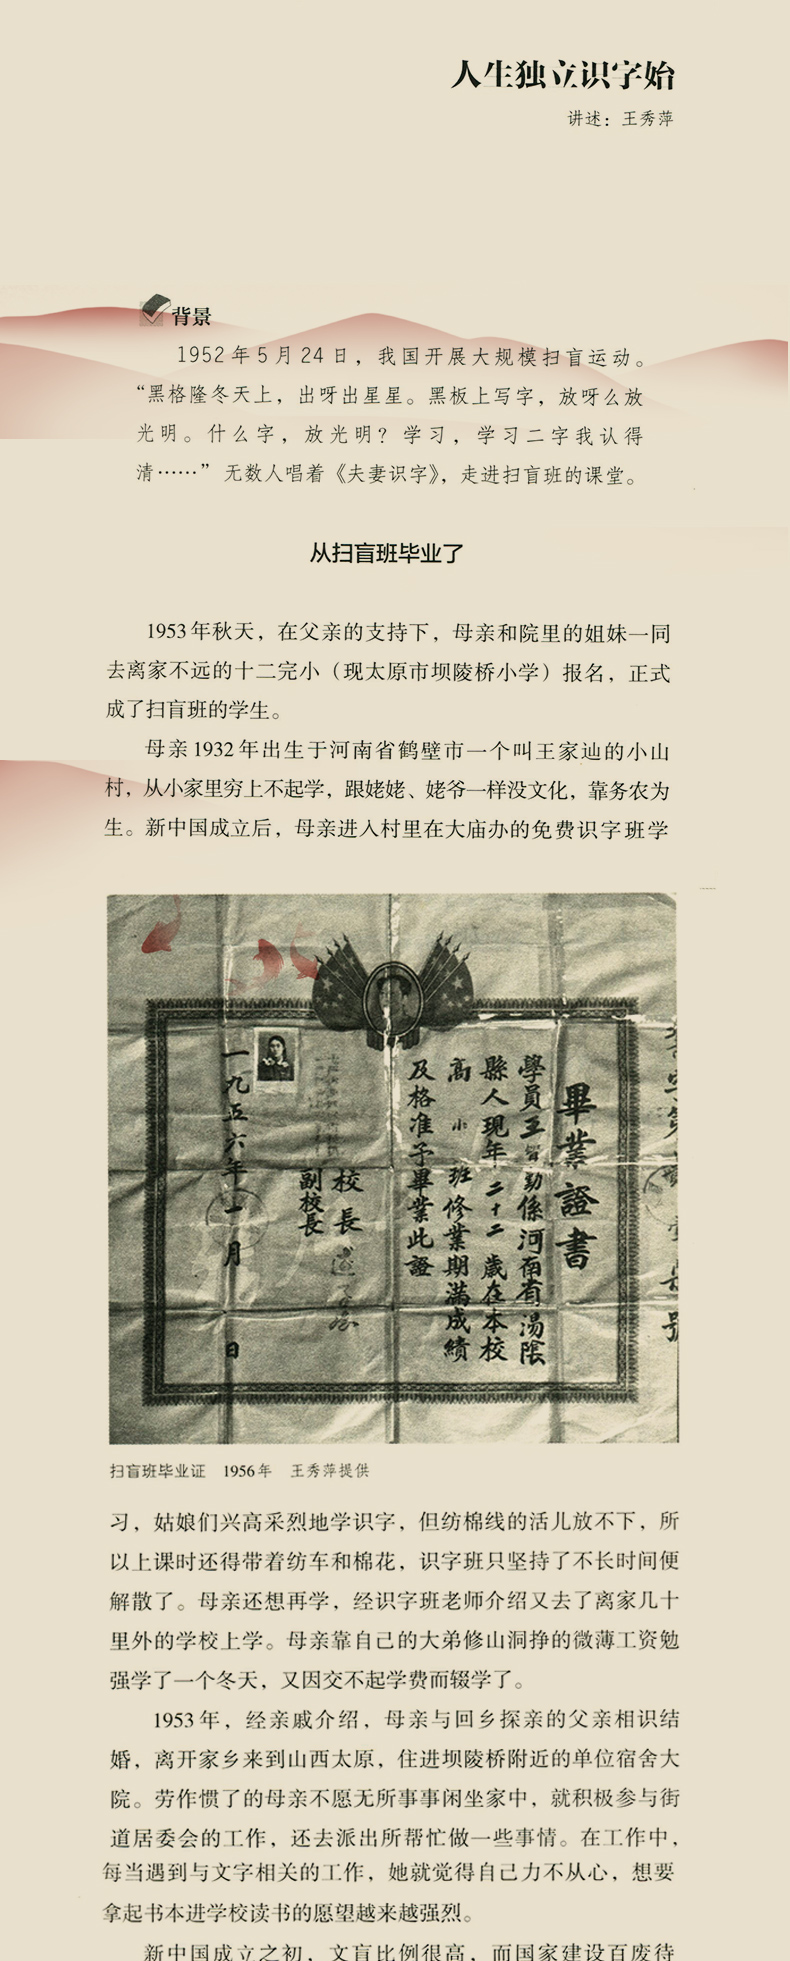 人生独立识字始
讲述：王秀萍
背景
1952年5月24日，我国开展大规模扫盲运动。
“黑格隆冬天上，出呀出星星。黑板上写字，放呀么放
光明。什么字，放光明？学习，学习二字我认得
清……”无数人唱着《夫妻识字》，走进扫盲班的课堂。
从扫盲班毕业了
1953年秋天，在父亲的支持下，母亲和院里的姐妹一同
去离家不远的十二完小（现太原市坝陵桥小学）报名，正式
成了扫盲班的学生。
母亲1932年出生于河南省鹤壁市一个叫王家辿的小山
村，从小家里穷上不起学，跟姥姥、姥爷一样没文化，靠务农为
生。新中国成立后，母亲进入村里在大庙办的免费识字班学
畢業證書
學員王 勤係河南省湯陰
縣人現年二十二歲在本校
高小班修業期滿成績
及格准予畢業此證
校長
副校長
一九五六年一月 日
扫盲班毕业证 1956年 王秀萍提供
习，姑娘们兴高采烈地学识字，但纺棉线的活儿放不下，所
以上课时还得带着纺车和棉花，识字班只坚持了不长时间便
解散了。母亲还想再学，经识字班老师介绍又去了离家几十
里外的学校上学。母亲靠自己的大弟修山洞挣的微薄工资勉
强学了一个冬天，又因交不起学费而辍学了。
1953年，经亲戚介绍，母亲与回乡探亲的父亲相识结
婚，离开家乡来到山西太原，住进坝陵桥附近的单位宿舍大
院。劳作惯了的母亲不愿无所事事闲坐家中，就积极参与街
道居委会的工作，还去派出所帮忙做一些事情。在工作中，
每当遇到与文字相关的工作，她就觉得自己力不从心，想要
拿起书本进学校读书的愿望越来越强烈。
新中国成立之初，文盲比例很高，而国家建设百废待